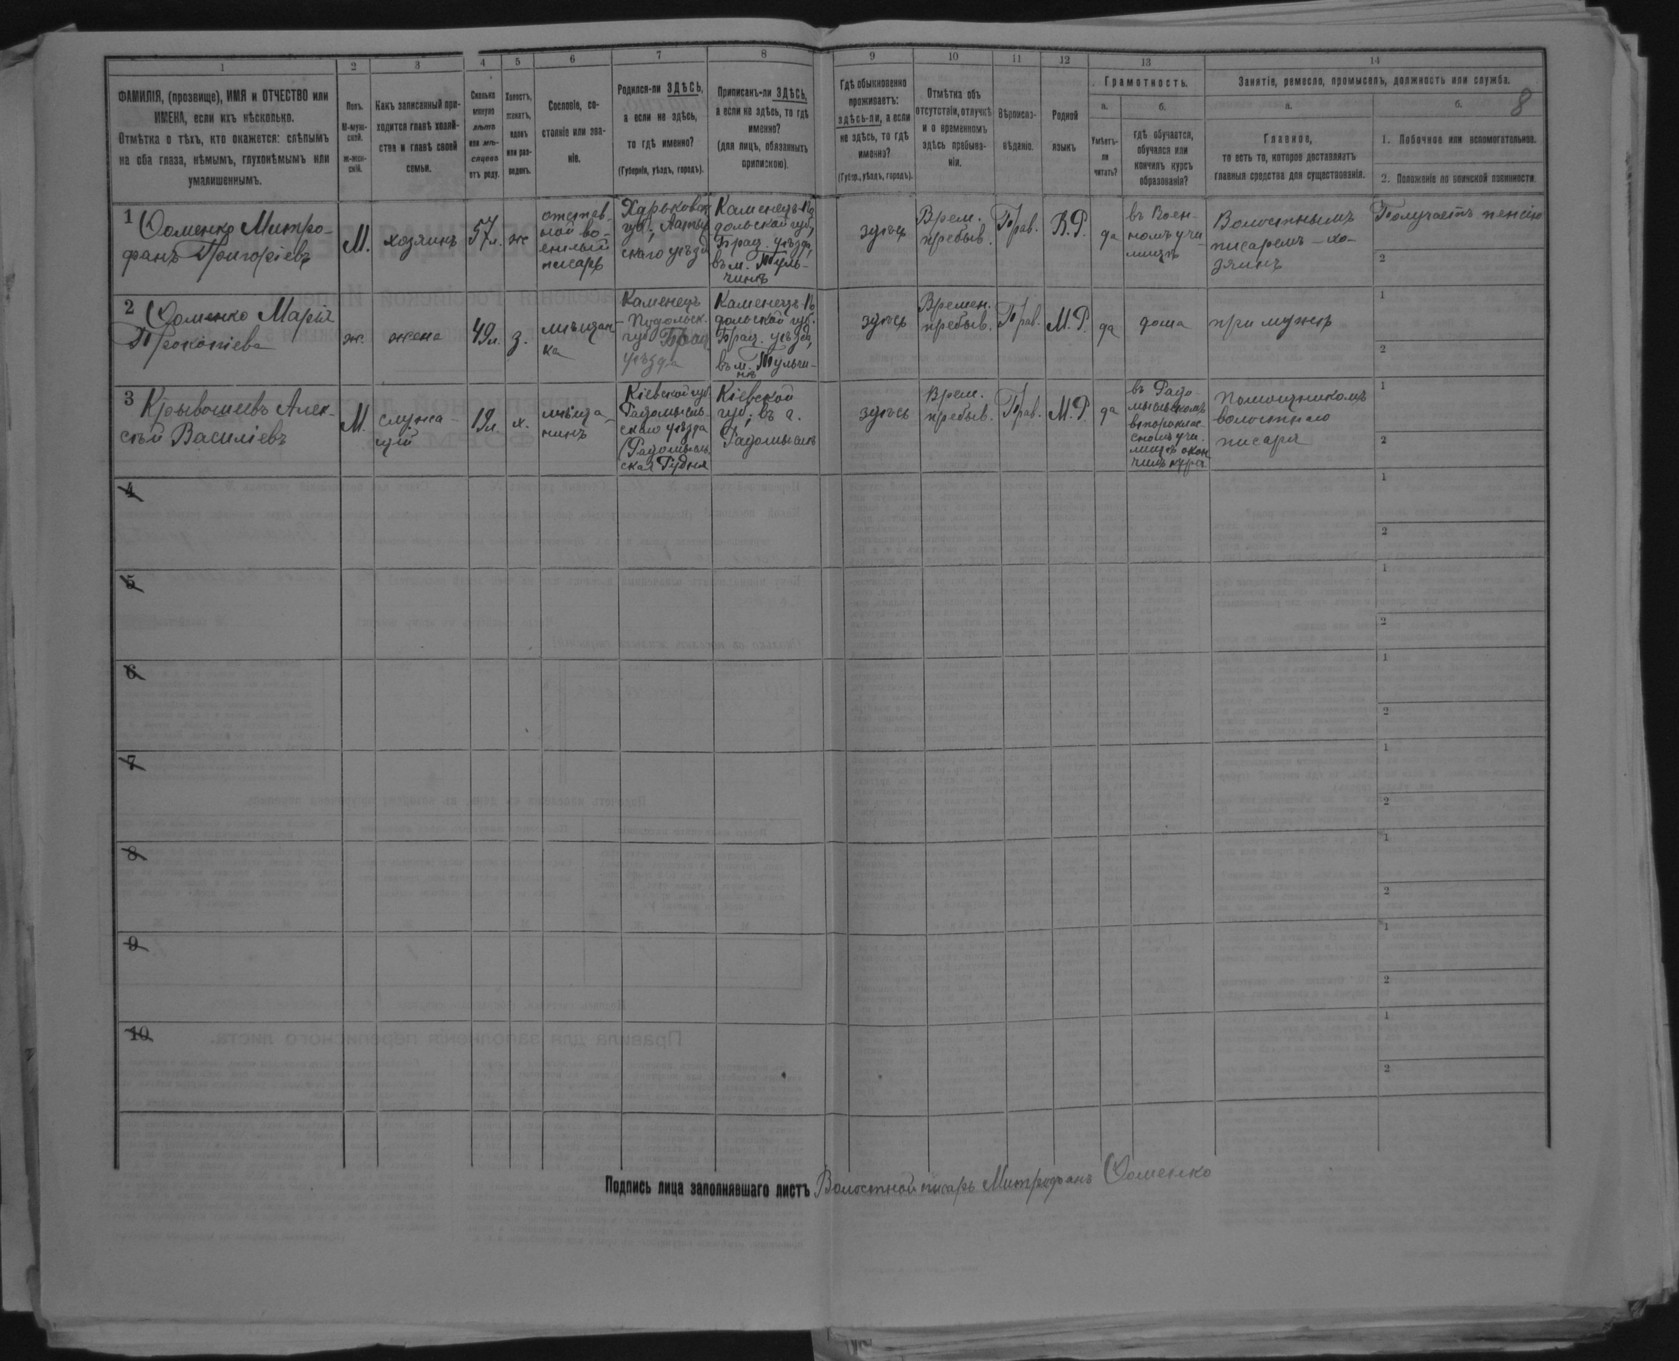 1
2
3
4
5
6
7
8
9
10
11
12
13
14
ФАМИЛІЯ, (прозвище), ИМЯ и ОТЧЕСТВО или
ИМЕНА, если ихъ нѣсколько.
Отмѣтка о тѣхъ, кто окажется: слѣпымъ
на оба глаза, нѣмымъ, глухонѣмымъ или
умалишеннымъ.
Полъ.
М-муж-
ской.
ж-жен-
скій.
Какъ записанный при-
ходится главѣ хозяй-
ства и главѣ своей
семьи.
Сколько
минуло
лѣтъ
или мѣ-
сяцевъ
отъ роду.
Холостъ,
женатъ,
вдовъ
или раз-
веденъ.
Сословіе, со-
стояніе или зва-
ніе.
Родился-ли ЗДѢСЬ,
а если не здѣсь,
то гдѣ именно?
(Губернія, уѣздъ, городъ).
Приписанъ-ли ЗДѢСЬ,
а если не здѣсь, то гдѣ
именно?
(для лицъ, обязанныхъ
припискою).
Гдѣ обыкновенно
проживаетъ:
здѣсь-ли, а если
не здѣсь, то гдѣ
именно?
(Губер., уѣздъ, городъ).
Отмѣтка объ
отсутствіи, отлучкѣ
и о временномъ
здѣсь пребыва-
ніи.
Вѣроиспо-
вѣданіе.
Родной
языкъ
Грамотность.
а.
Умѣетъ-
ли
читать?
б.
гдѣ обучается,
обучался или
кончилъ курсъ
образованія?
Занятіе, ремесло, промыселъ, должность или служба.
8
а.
Главное,
то есть то, которое доставляетъ
главныя средства для существованія.
б.
1. Побочное или вспомогательное.
2. Положеніе по воинской повинности.
1 Фоменко Митро-
фанъ Григоріевъ
М.
хозяинъ
57 л.
ж
отстав-
ной во-
енный
писарь
Харьковск
губ.,
скаго уѣзда
Каменецъ По
дольской губ,
Брац. уѣзда,
въ м. Туль-
чинѣ
здѣсь
Врем.
пребыв.
Прав.
В.Р.
да
въ Воен-
номъ учи-
лищѣ
Волостнымъ
писаремъ - хо-
зяинъ
Получаетъ пенсію
2
2 Фоменко Марія
Прокопіева
ж.
жена
49 л.
з.
мѣщан
ка
Каменецъ
- Подольск.
губ Брац
уѣзда
Каменецъ По
дольской губ.
Брац. уѣзда,
въ м. Тульчи-
нѣ
здѣсь
Времен.
пребыв.
Прав.
М.Р.
да
дома
при мужѣ
1
2
3 Кривошеевъ Алек-
сѣй Василіевъ
М.
служа-
щій
19 л
х.
мѣща-
нинъ
Кіевской губ.
Радомысль-
скаго уѣзда
(Радомысль-
ская Рудня
Кіевской
губ, въ г.
Радомыслѣ
здѣсь
Врем.
пребыв.
Прав.
М.Р.
да
въ Радо
мысльскомъ
второклас
сномъ учи-
лищѣ окон
чилъ курсъ
Помощникомъ
волостного
писаря
1
2
4
1
2
5
1
2
6
1
2
7
1
2
8
1
2
9
1
2
10
1
2
Подпись лица заполнявшаго листъ Волостной писарь Митрофанъ Фоменко